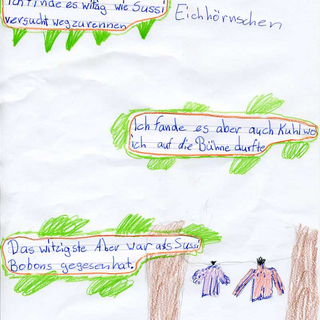 Ich finde es witzig wie Sussi
versucht wegzurennen
Eichhörnschen
Ich fande es aber auch Kuhl wo
ich auf die Bühne durfte
Das witzigste Aber war als Sussi
Bobons gegesenhat.